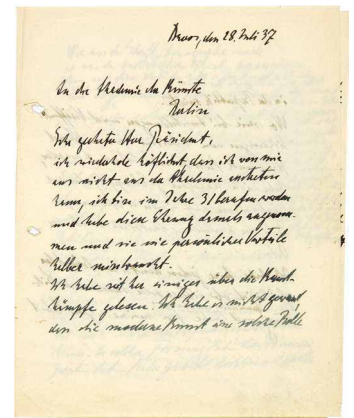 Davos, den 28. Juli 37
An die Akademie der Künste
Berlin
Sehr geehrter Herr Präsident,
ich wiederhole höflichst, dass ich von mir
aus nicht aus der Akademie austreten
kann, ich bin im Jahre 31 berufen worden
und habe diese Ehrung damals angenom-
men und nie wie persönlicher Vorteile
halber missbraucht.
Ich habe seither einiges über die Kunst-
kämpfe gelesen. Ich habe es nicht gewusst,
dass die moderne Kunst eine solche Rolle